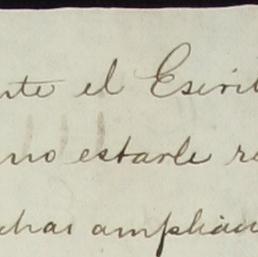 nte el Escrit
mo estarle re
chas amplian